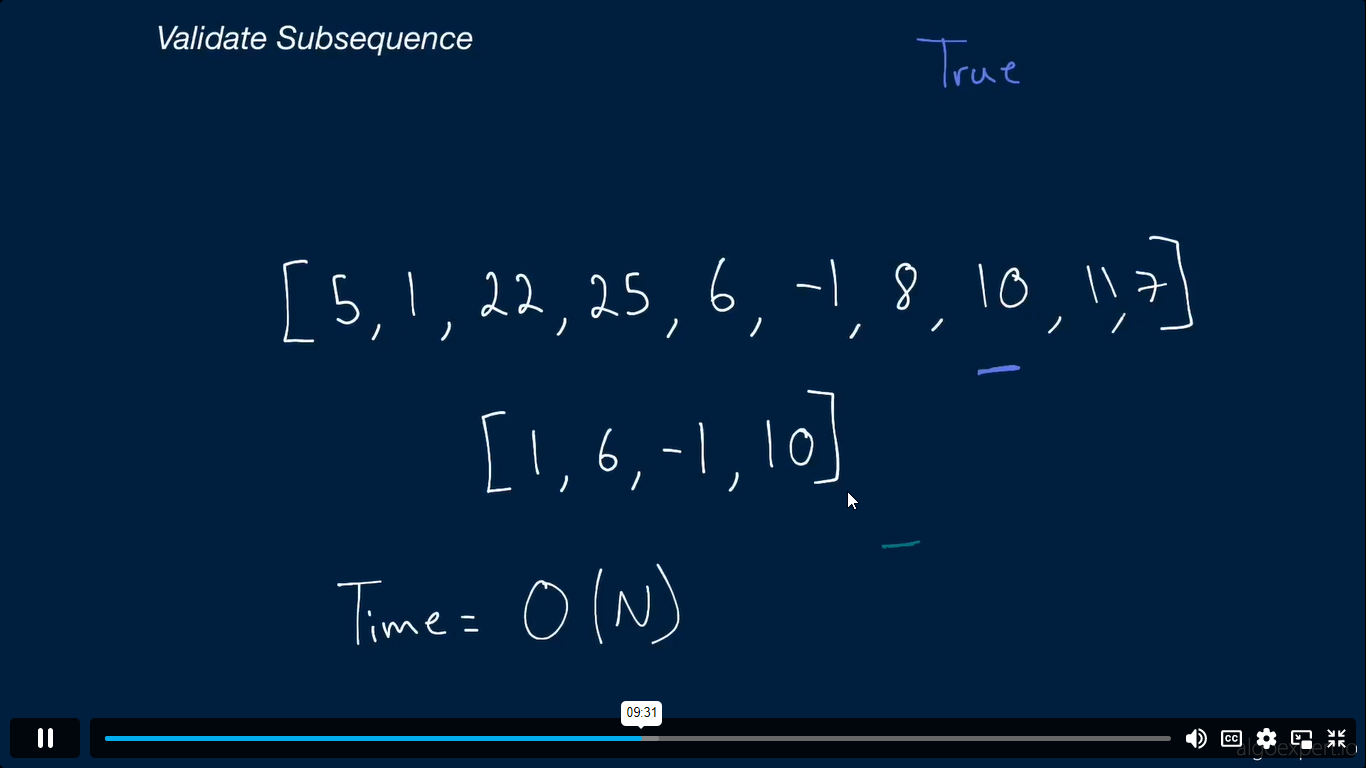 Validate Subsequence
True
[5, 1, 22, 25, 6, -1, 8, 10, 11, 7]
[1, 6, -1, 10]
Time = O(N)
09:31
CC
algoexpert.io